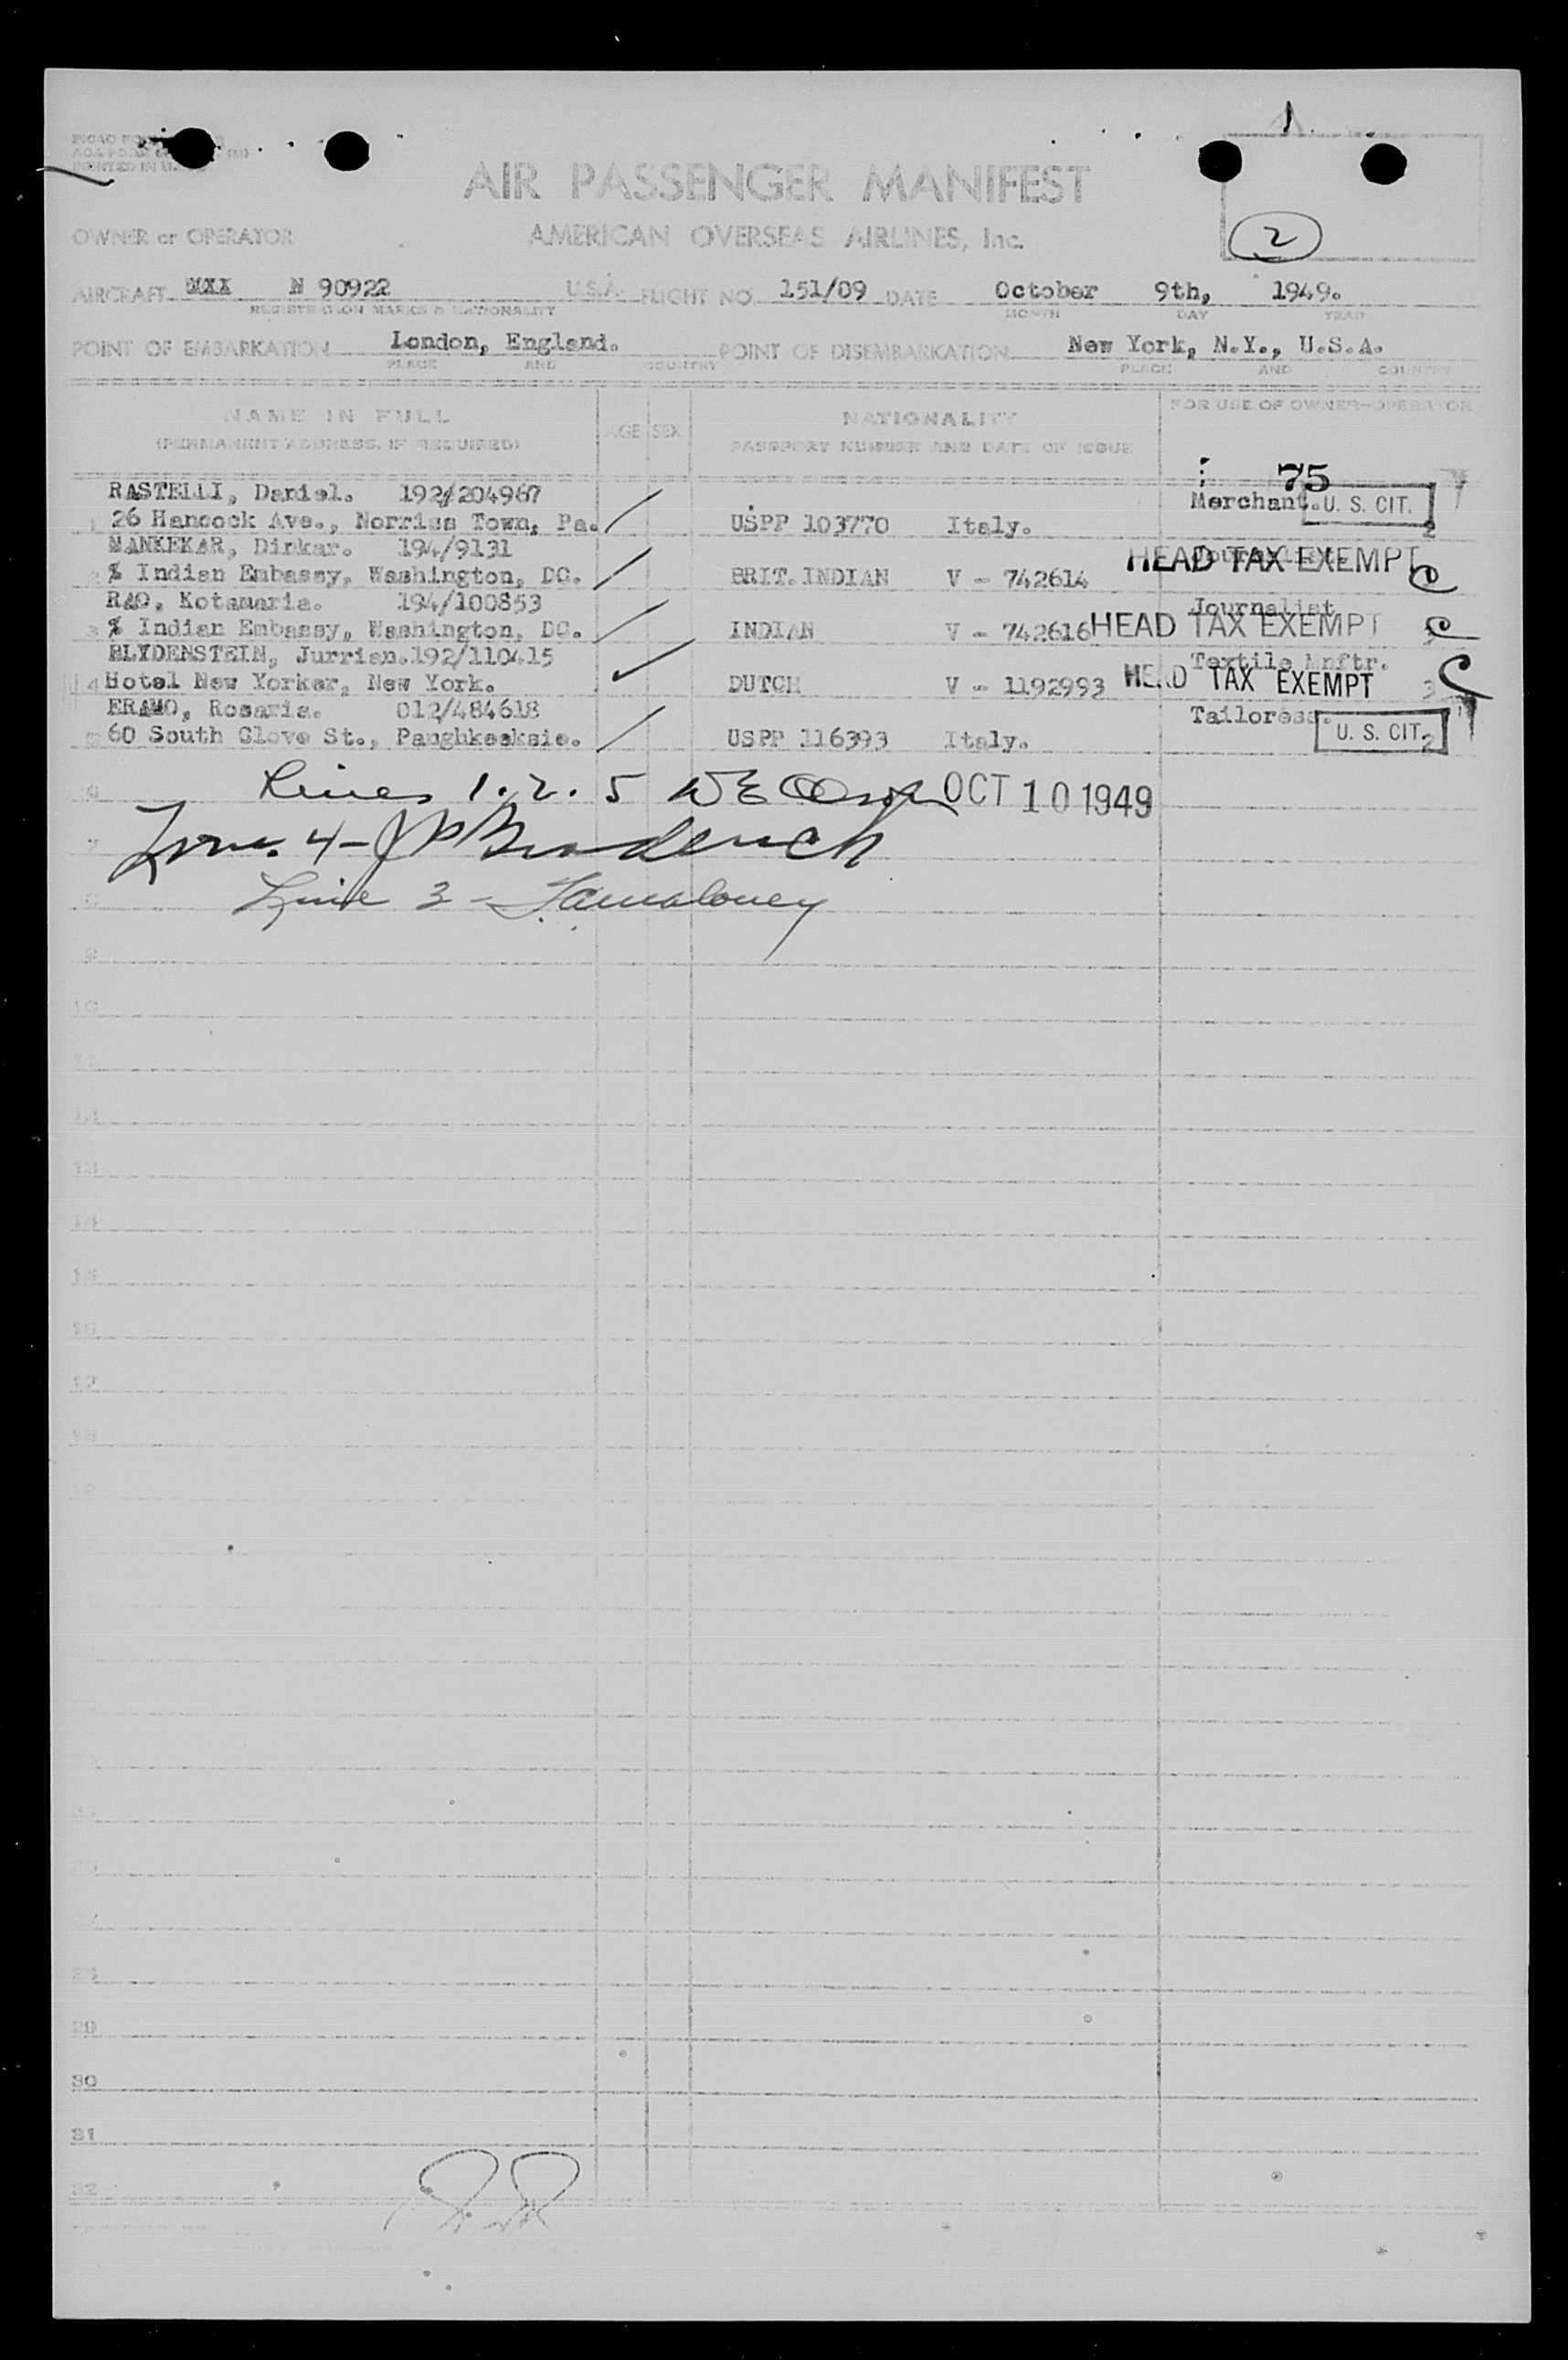 PRINTED IN
AIR PASSENGER MANIFEST
OWNER or OPERATOR AMERICAN OVERSEAS AIRLINES, Inc.
2
AIRCRAFT MXX N 90922 U.S.A. FLIGHT NO. 151/09 DATE October 9th, 1949.
REGISTRATION MARKS & NATIONALITY MONTH DAY YEAR
POINT OF EMBARKATION London, England. POINT OF DISEMBARKATION New York, N.Y., U.S.A.
PLACE AND COUNTRY PLACE AND COUNTRY
NAME IN FULL AGE SEX NATIONALITY FOR USE OF OWNER-OPERATOR
(PERMANENT ADDRESS, IF REQUIRED) PASSPORT NUMBER AND DATE OF ISSUE
75
RASTELLI, Daniel. 192/204967 Merchant. U. S. CIT.
1 26 Hancock Ave., Norriss Town, Pa. USPP 103770 Italy. 2
MANKEKAR, Dinkar. 194/9131 HEAD TAX EXEMPT
2 % Indian Embassy, Washington, DC. BRIT. INDIAN V - 742614
RAO, Kotamaria. 194/100853 Journalist
3 % Indian Embassy, Washington, DC. INDIAN V - 742616 HEAD TAX EXEMPT
BLYDENSTEIN, Jurrian. 192/110415 Textile Mnftr.
4 Hotel New Yorker, New York. DUTCH V - 1192993 HEAD TAX EXEMPT 3
ERAMO, Rosaria. 012/484618 Tailoress.
5 60 South Clove St., Paughkeeksie. USPP 116393 Italy. U. S. CIT. 2
6 Lines 1. 2. 5 OCT 10 1949
7 4 -
8 Line 3 -
9
10
11
12
13
14
15
16
17
18
29
30
31
32